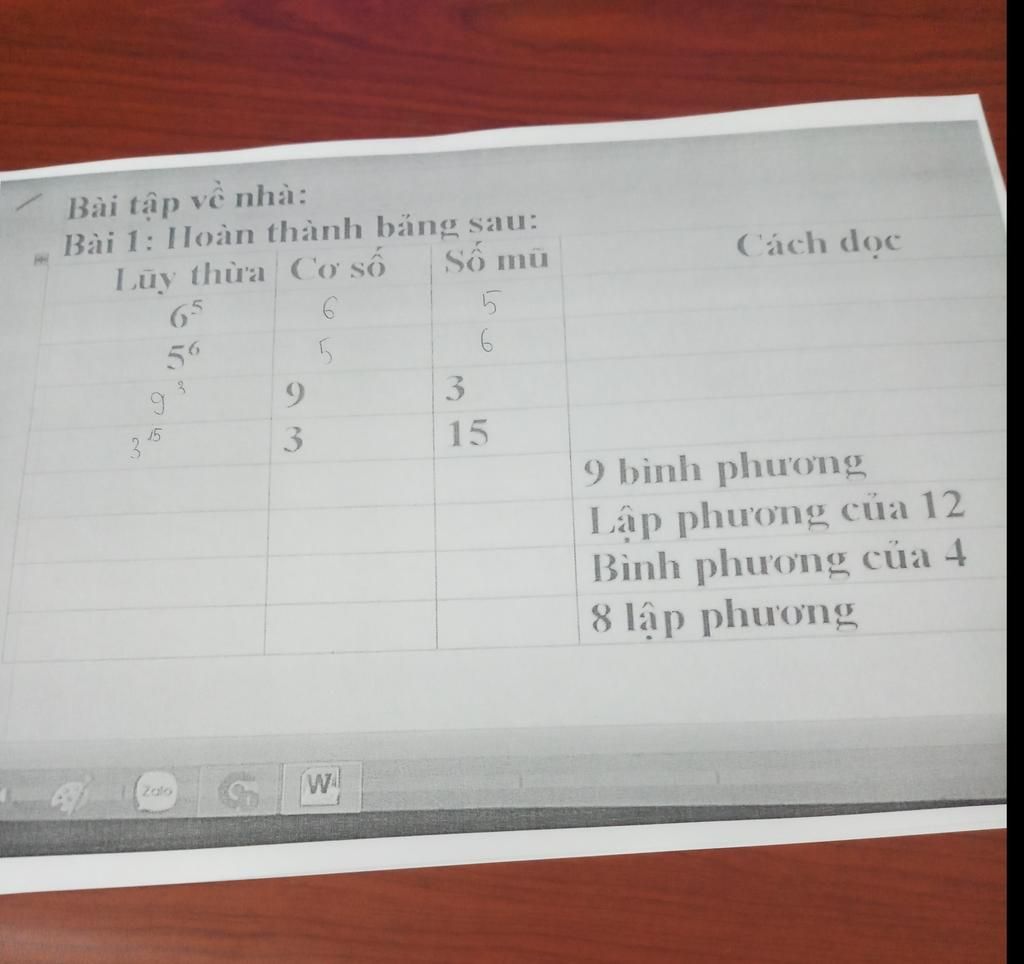 Bài tập về nhà:
Bài 1: Hoàn thành bảng sau:
Lũy thừa Cơ số Số mũ Cách đọc
6⁵ 6 5
5⁶ 5 6
9³ 9 3
3¹⁵ 3 15
9 bình phương
Lập phương của 12
Bình phương của 4
8 lập phương
Zalo
W